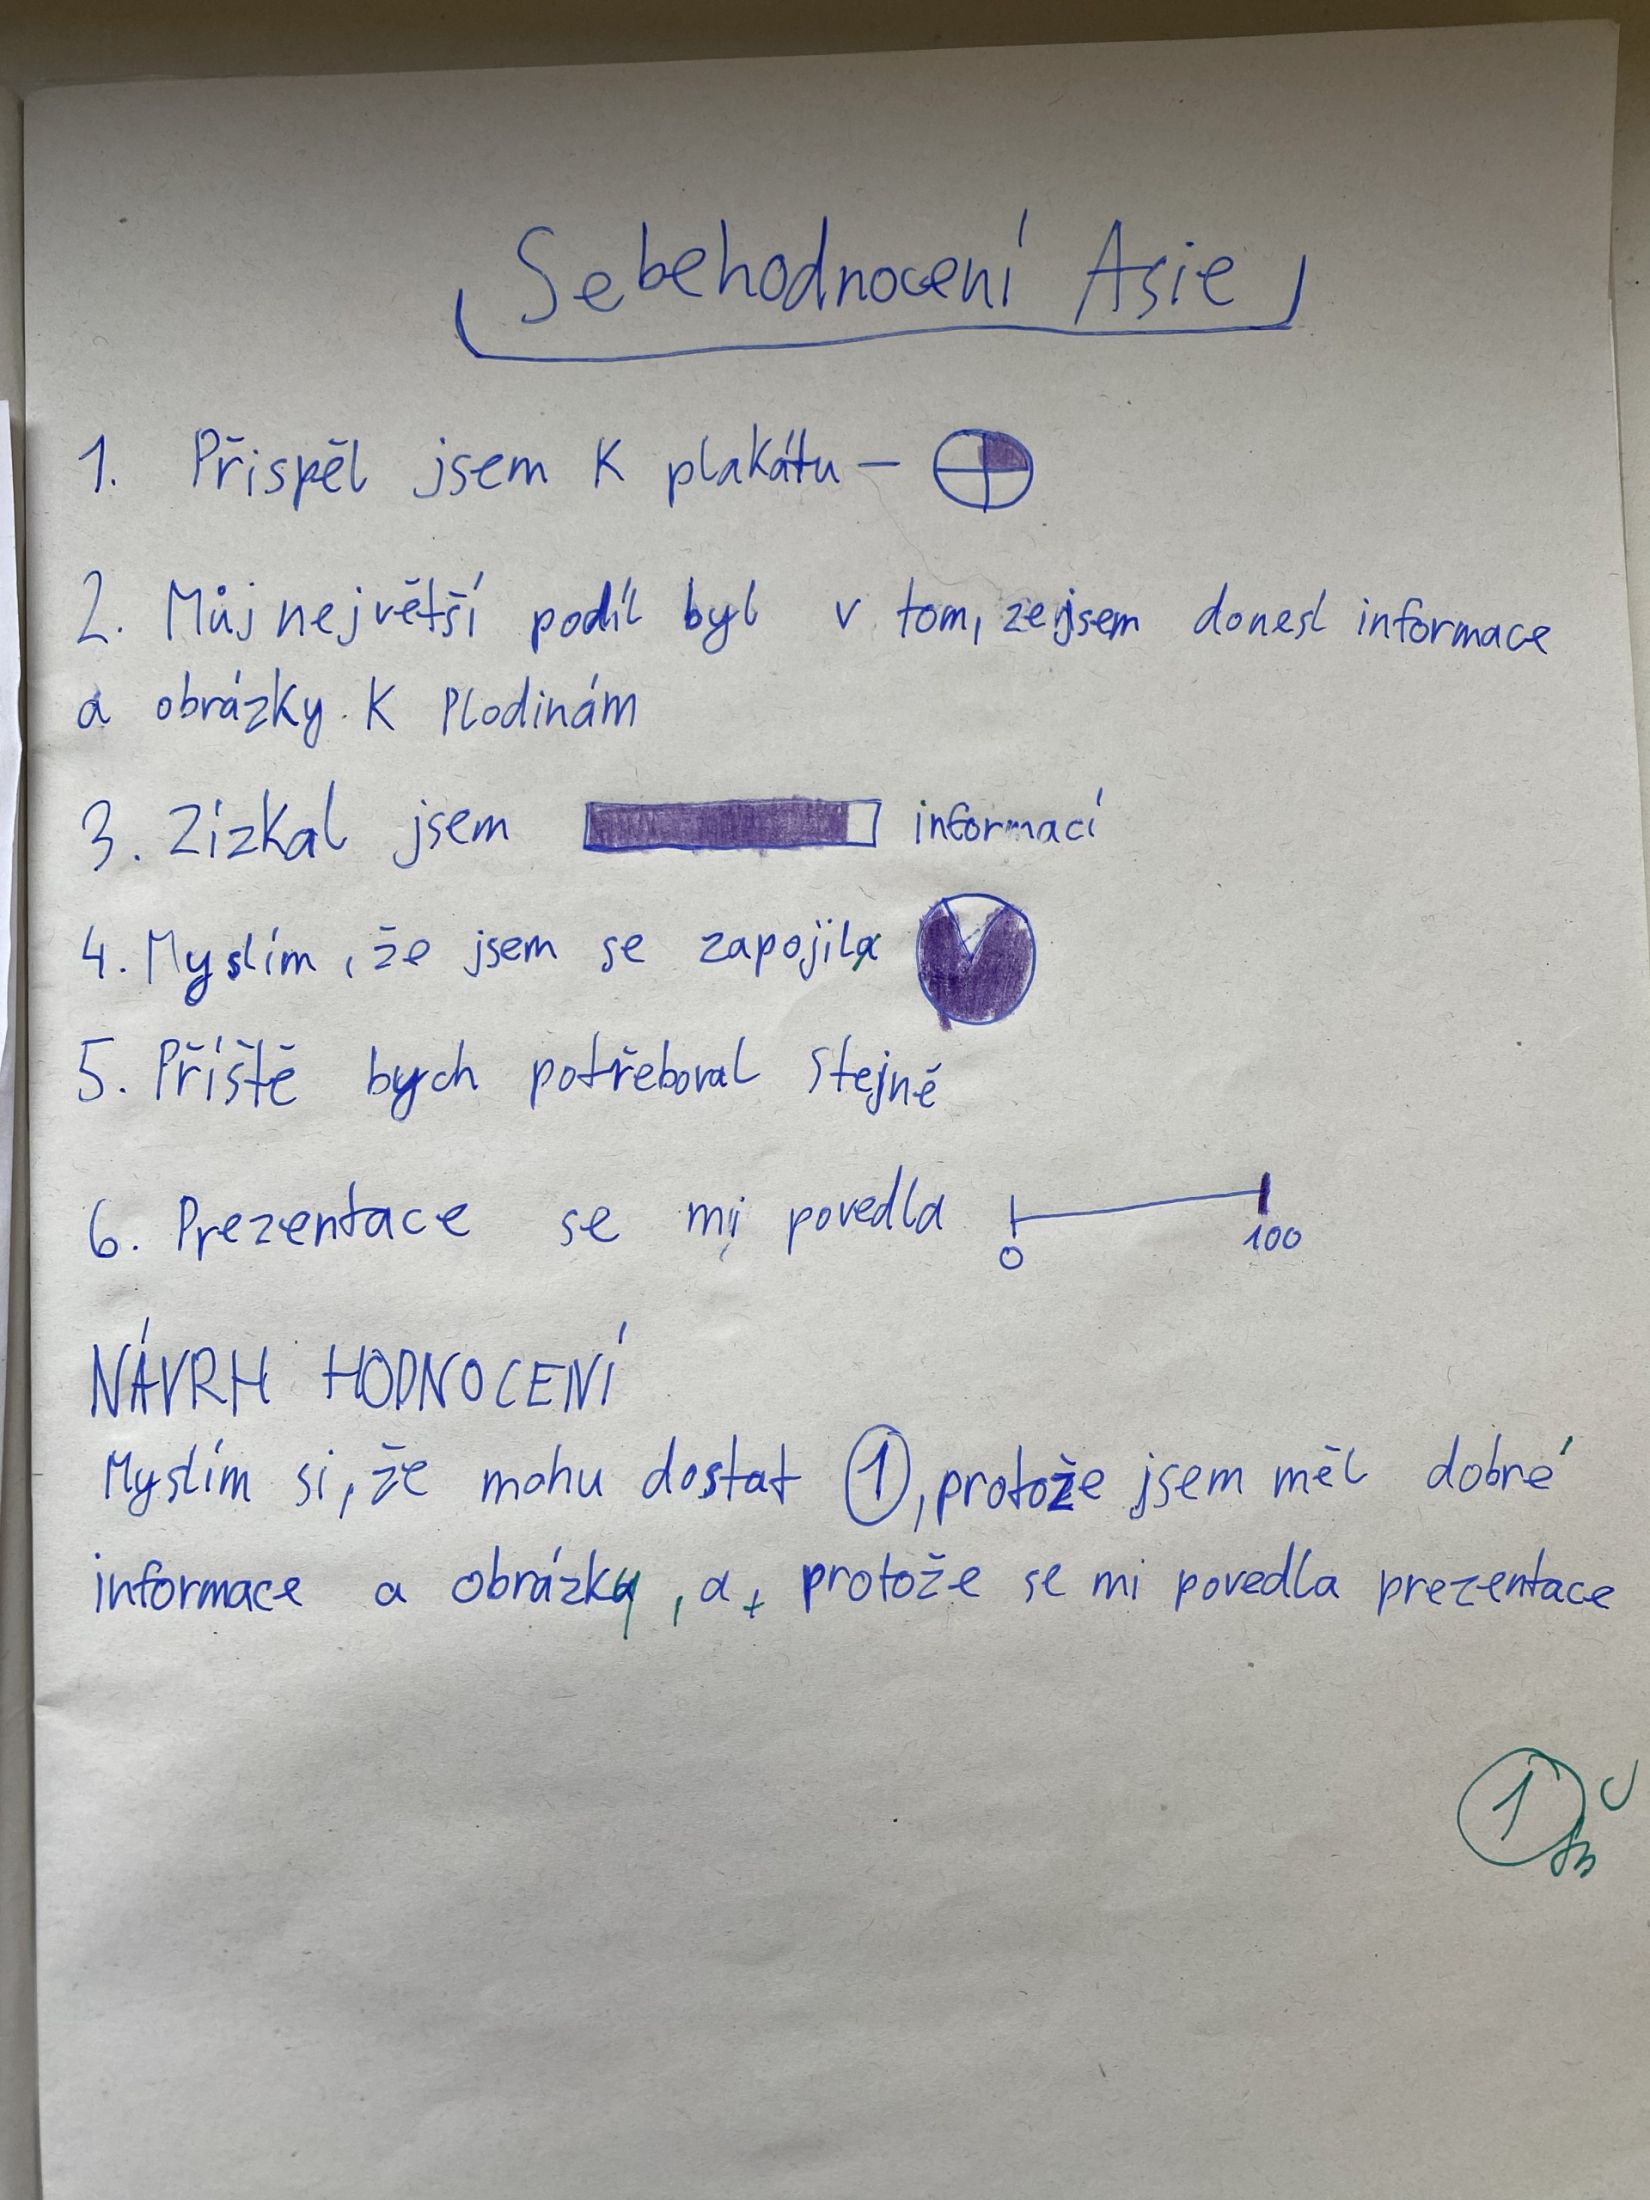 Sebehodnocení Asie
1. Přispěl jsem k plakátu –
2. Můj největší podíl byl v tom, že jsem donesl informace
a obrázky k plodinám
3. Zízkal jsem informací
4. Myslím, že jsem se zapojila
5. Příště bych potřeboval stejně
6. Prezentace se mi povedla
0 100
NÁVRH HODNOCENÍ
Myslím si, že mohu dostat 1, protože jsem měl dobré
informace a obrázky, a, protože se mi povedla prezentace
1